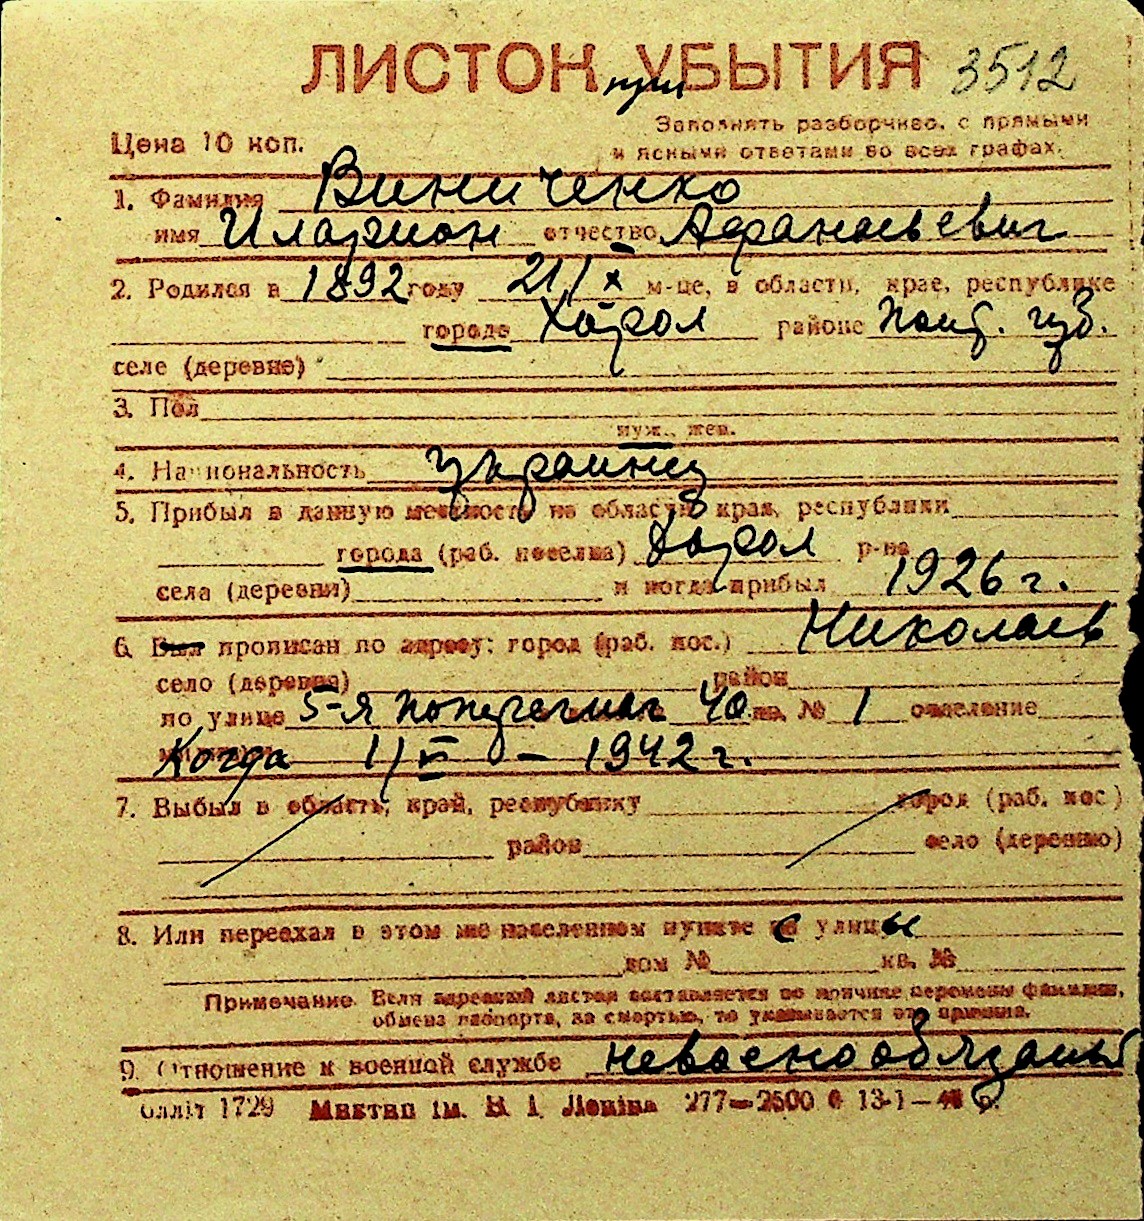 ЛИСТОК УБЫТИЯ 3512
при
Цена 10 коп.
Заполнять разборчиво, с прямыми
и ясными ответами во всех графах.
1. Фамилия Виниченко
имя Иларион отчество Афанасьевич
2. Родился в 1892 году 21/X м-це, в области, крае, республике
городе Хорол районе Полт. губ.
селе (деревне)
3. Пол
муж., жен.
4. Национальность украинец
5. Прибыл в данную местность из области, края, республики
города (раб. поселка) Хорол р-на
села (деревни) и когда прибыл 1926 г.
6. Был прописан по адресу: город (раб. пос.) Николаев
село (деревня) район
по улице 5-я Поперечная 40 кв. № 1 отделение
Когда 1942 г.
7. Выбыл в область, край, республику город (раб. пос.)
район село (деревню)
8. Или переехал в этом же населенном пункте с улицы
дом № кв. №
Примечание. Если адресный листок составляется по причине перемены фамилии,
обмена паспорта, за смертью, то указывается эта причина.
9. Отношение к военной службе невоеннообязаный
Обліт 1729 Миктип ім. В. І. Леніна 277—2500 13-1—